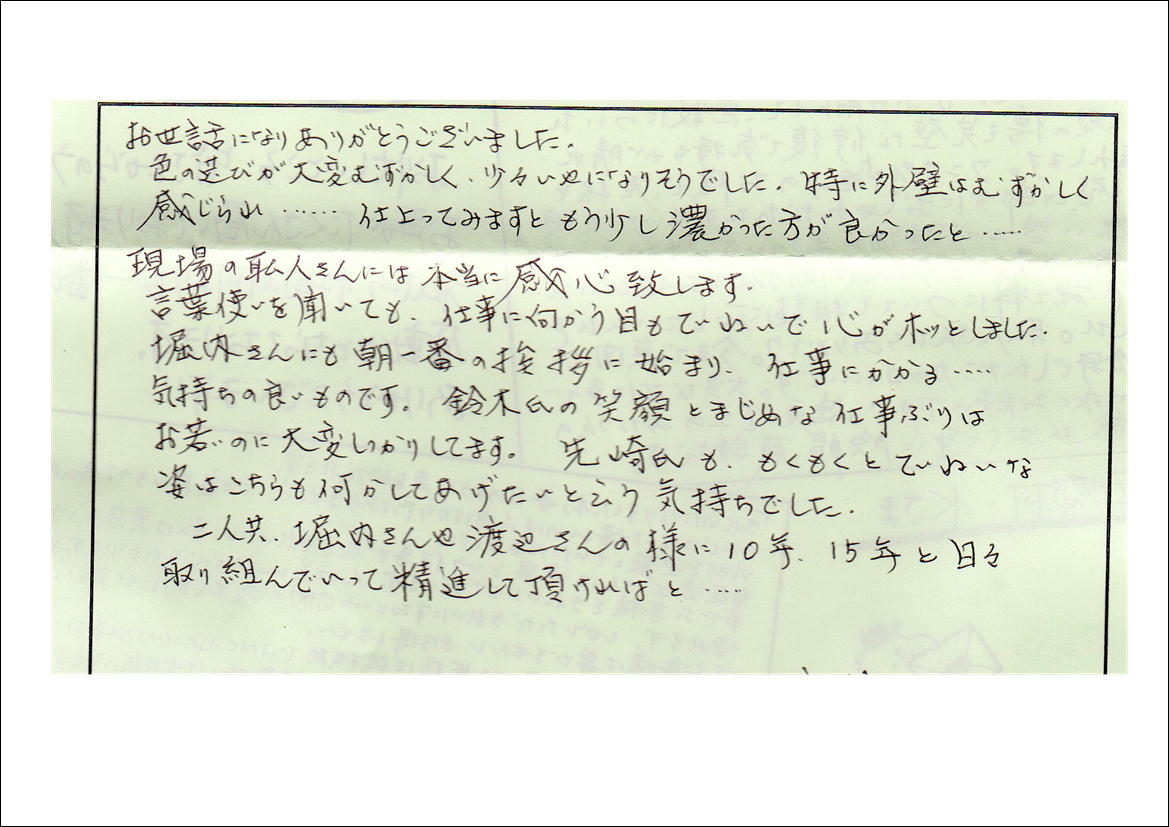 お世話になりありがとうございました.
色の選びが大変むずかしく、少々いやになりそうでした. 特に外壁はむずかしく
感じられ …… 仕上ってみますと もう少し濃かった方が良かったと……
現場の職人さんには本当に感心致します.
言葉使いを聞いても、仕事に何かう目もていねいで心がホッとしました.
堀内さんにも朝一番の挨拶に始まり、仕事にかかる……
気持ちの良いものです. 鈴木氏の笑顔とまじめな仕事ぶりは
お若いのに大変しっかりしてます。 先崎氏も、もくもくとていねいな
姿はこちらも何かしてあげたいと云う気持ちでした.
二人共、堀内さんや渡辺さんの様に10年、15年と日々
取り組んでいって精進して頂ければと……